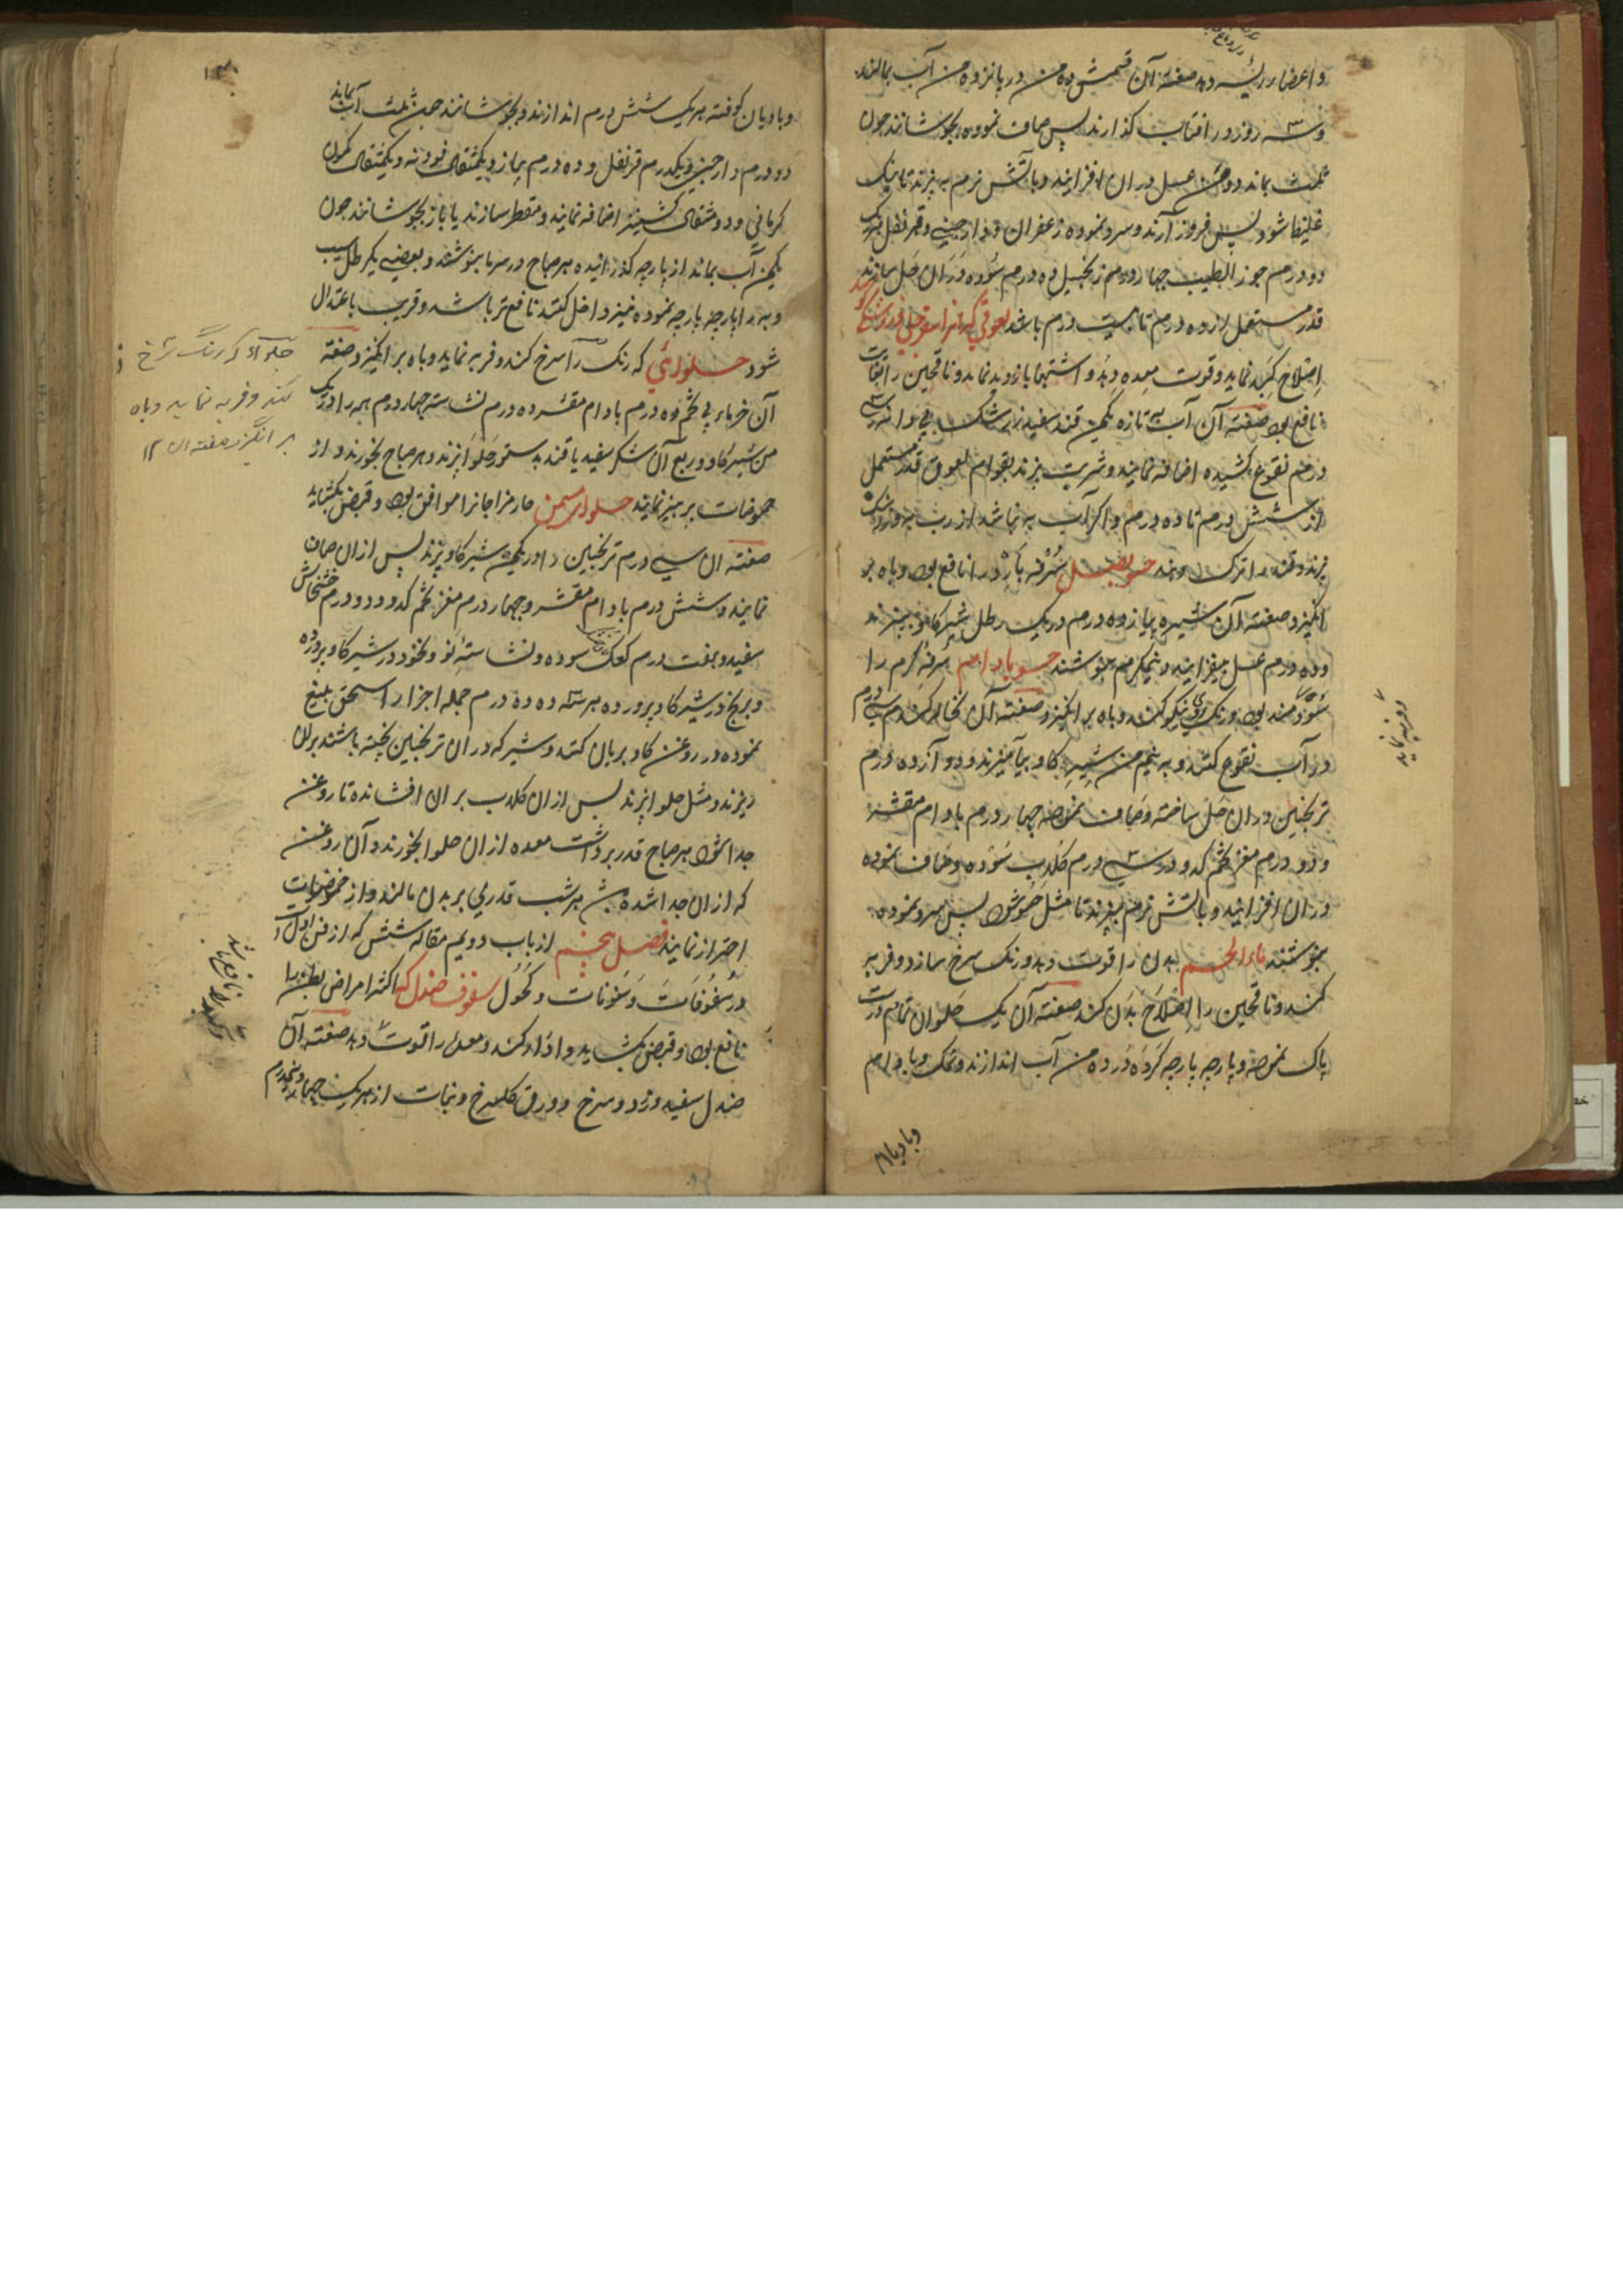 و اعضاء رئیسه دهد صفته آن قشمش ده من در پانزده من آب بمالند
و سه روز در افتاب کذارند پس صاف نموده بجوشانند چون
ثلث بماند دو من عسل در ان افزایند و باتش نرم به پزند تا نیک
غلیظ شود پس فروز آرند و سرد نموده زعفران و دارچینی و قرنفل هریک
دو درم جوز الطیب چهار درم زنجبیل ده درم سوده دران حل سازند
قدر مستعمل از ده درم تا بیست درم باشد لعوقی که انرا
اصلاح کبد نماید و قوت معده دهد و اشتها بازدید نماید و ناقحین را بغایت
نافع بود صفته آن آب به تازه یکمن قند سفید زرشک بی دانه سی
درم نقوع کشیده اضافه نمایند و شربت پزند بقوام لعوق قدر مستعمل
از شش درم تا ده درم و اکر آب به نباشد از رب به و زرشک
پزند و قند را ترک دهند حسو بصل سرفه بارد را نافع بود و باه بر
انکیزد صفته آن شیره پیاز ده درم در یک رطل شیر کاو بپزند
و ده درم عسل بیفزایند و نیمکرم بنوشند حسو بادام سرفه کرم را
سودمند بود و رنک روی نیکو کند و باه بر انکیزد صفته آن نخاله کندم سی درم
در آب نقوع کنند و به نیم من شیر کاو بیآمیزند و دوآزده درم
ترنجبین دران حل ساخته و صاف نموده چهار درم بادام مقشر
و دو درم مغز تخم کدو در سی درم کلاب سوده و صاف نموده
دران افزایند و باتش نرم بپزند تا مثل حسو شود پس سرد نموده
بنوشند ماء اللحم بدن را قوت دهد و رنک سرخ سازد و فربه
کند و ناقحین را اصلاح بدن کند صفته آن یک حلوان تمام درست
پاک نموده و پارچه پارچه کرده در ده من آب اندازند و نمک و بادام
و بادیان
و بادیان کوفته هریک شش درم اندازند و بجوشانند چون ثلث آب بماند
دو درم دارچینی و یکدرم قرنفل و ده درم پیاز و یکمثقال فودنه و یکمثقال کمون
کرمانی و دو مثقال کشنیز اضافه نمایند و مقطر سازند یا باز بجوشانند چون
یکمن آب بماند از پارچه کذرانیده هر صباح در سرما بنوشند و بعضی یکرطل سیب
و به را پارچه پارچه نموده نیز داخل کنند نافع تر باشد و قریب باعتدال
شود حلوائی که رنک را سرخ کند و فربه نماید و باه بر انکیزد صفته
آن خرماء بی تخم ده درم بادام مقشر ده درم نشاسته چهار درم همه را در یک
من شیر کاو و ربع آن شکر سفید یا قند بدستور حلوا پزند و هر صباح بخورند و از
حموضات پرهیز نمایند حلوای مسمن حار مزاجانرا موافق بود و قبض بکشاید
صفته ان سی درم ترنجبین را در یکمن شیر کاو پزند پس ازان صاف
نمایند و شش درم بادام مقشر و چهار درم مغز تخم کدو و دو درم خشخاش
سفید و هفت درم کعک سوده و نشاسته نو و نخود در شیر کاو پرورده
و برنج در شیر کاو پرورده هر سه ده ده درم جمله اجزا را سحق بلیغ
نموده در روغن کاو بریان کنند و شیر که دران ترنجبین پخته باشند بران
ریزند و مثل حلوا پزند پس ازان کلاب بران افشانده تا روغن
جدا شود هر صباح قدر برداشت معده ازان حلوا بخورند و آن روغن
که ازان جدا شده هر شب قدری بر بدن مالند و از حموضات
احتراز نمایند فصل پنجم از باب دویم مقاله شش که از فن اول
در سفوفات و سنونات و کحول سفوف صندل که اکثر امراض بطن را
نافع بود و قبض بکشاید و ادرار کند و معده را قوت دهد صفته آن
صندل سفید و زرد و سرخ و ورق کلسرخ و نبات از هریک چهار درم
حلوآی که رنک سرخ
کند و فربه نماید و باه
بر انگیزد صفته ان ۱۲